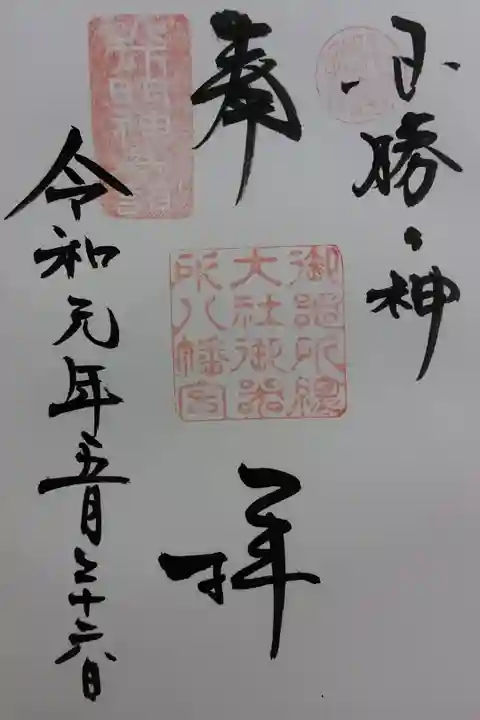 必勝の神
奉
御器所總
大社御器
所八幡宮
拝
令和元年五月二十六日